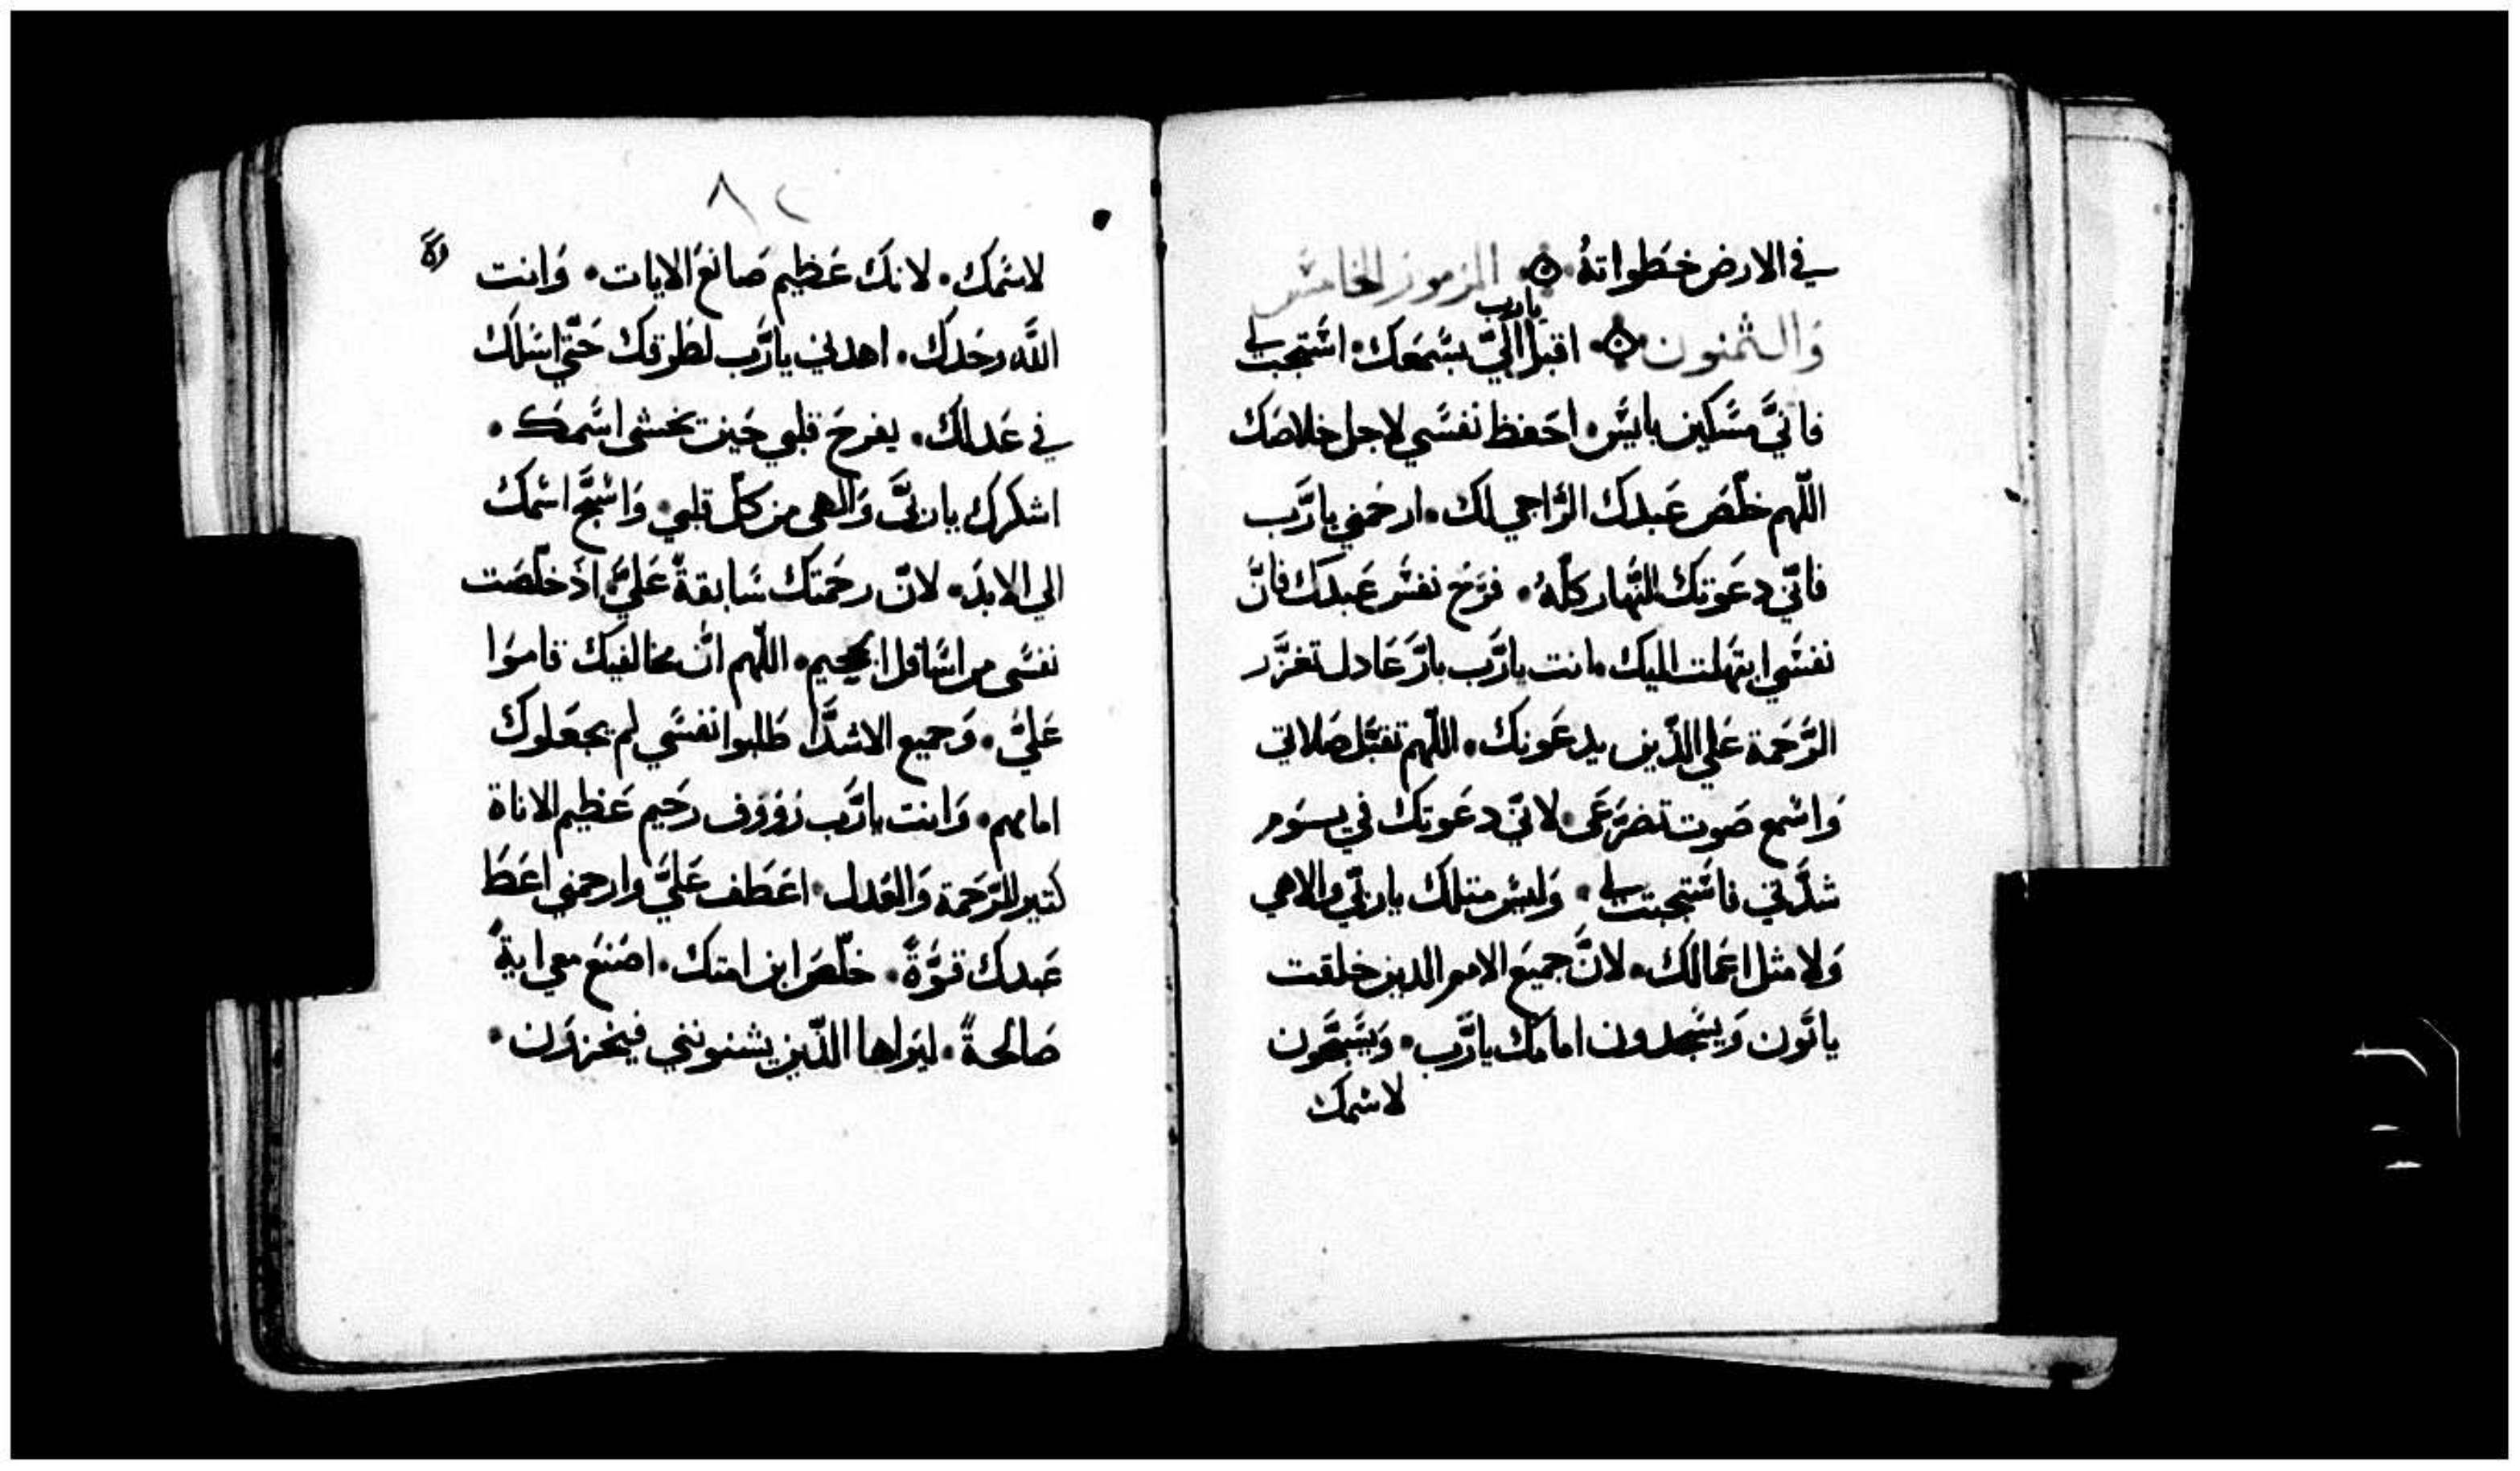 في الارض خطواتهُ ۞ المزمور الخامس
وَالثمنون ۞ اقبل اليَّ يارب بسَمعَك اسَتجبت لي
فانيَّ مسَكين بايسَ احَفظ نفسَي لاجل خلاصَك
اللّهم خلّصَ عَبدك الرَّاجي لك ارحَمني يارَّب
فانيّ دعَوتك النَّهار كلّهُ فرَحّ نفسَ عَبدك فانَّ
نفسَي ابتهَلت اليك انت يارَّب بارَّ عَادل تغزَّر
الرَّحَمة عَلي الذّين يدعَونك اللّهم تقبَّل صَلاتي
وَاسَمع صَوت تضرَّعَي لانيّ دعَوتك في يـوَم
شدَّتي فاسَتجبت لي وَليسَ مثلك ياربيّ والاهي
وَلا مثل اعَمالك لانَّ جميَع الامم الدين خلقت
ياتَون وَيسَجدون امامك يارَّب وَيسَبحَّون
لاسَمك
٨٢
لاسَمَك لانكَ عَظيم صَانعَ الايات وَانت
اللَّه وحَدك اهدني يارَّب لطرَيقك حَتيّ اسَلَك
في عَدلك يفرحَ قلبي حَين تخشى اسَمكَ
اشكرك يا ربيَّ وَالَهي من كلّ قلبي وَاسَبحَّ اسَمَك
الي الابدَ لانّ رحَمتك سَابقةً عَليَّ اذَ خلّصَت
نفسَي من اسَافل الجحيم اللّهم انّ مخالفيك قاموَا
عَليَّ وَجميع الاشدَّا طَلبوا نفسَي لم يجعَلوك
امامهم وَانت يارَّب رَؤوف رحَيم عَظيم الاناة
كتير الرَّحَمة وَالعَدل اعَطف عَليَّ وارحمني اعَطَ
عَبدك قوَّةً خلّصَ ابن امتك اصَنعَ معي ايةً
صَالحةً ليَراها الذّين يشنونني فيخزوَن